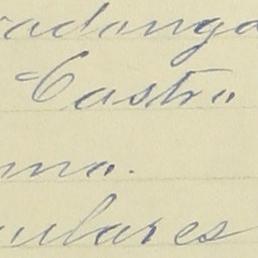 adonga
Castro
ma.
ulares